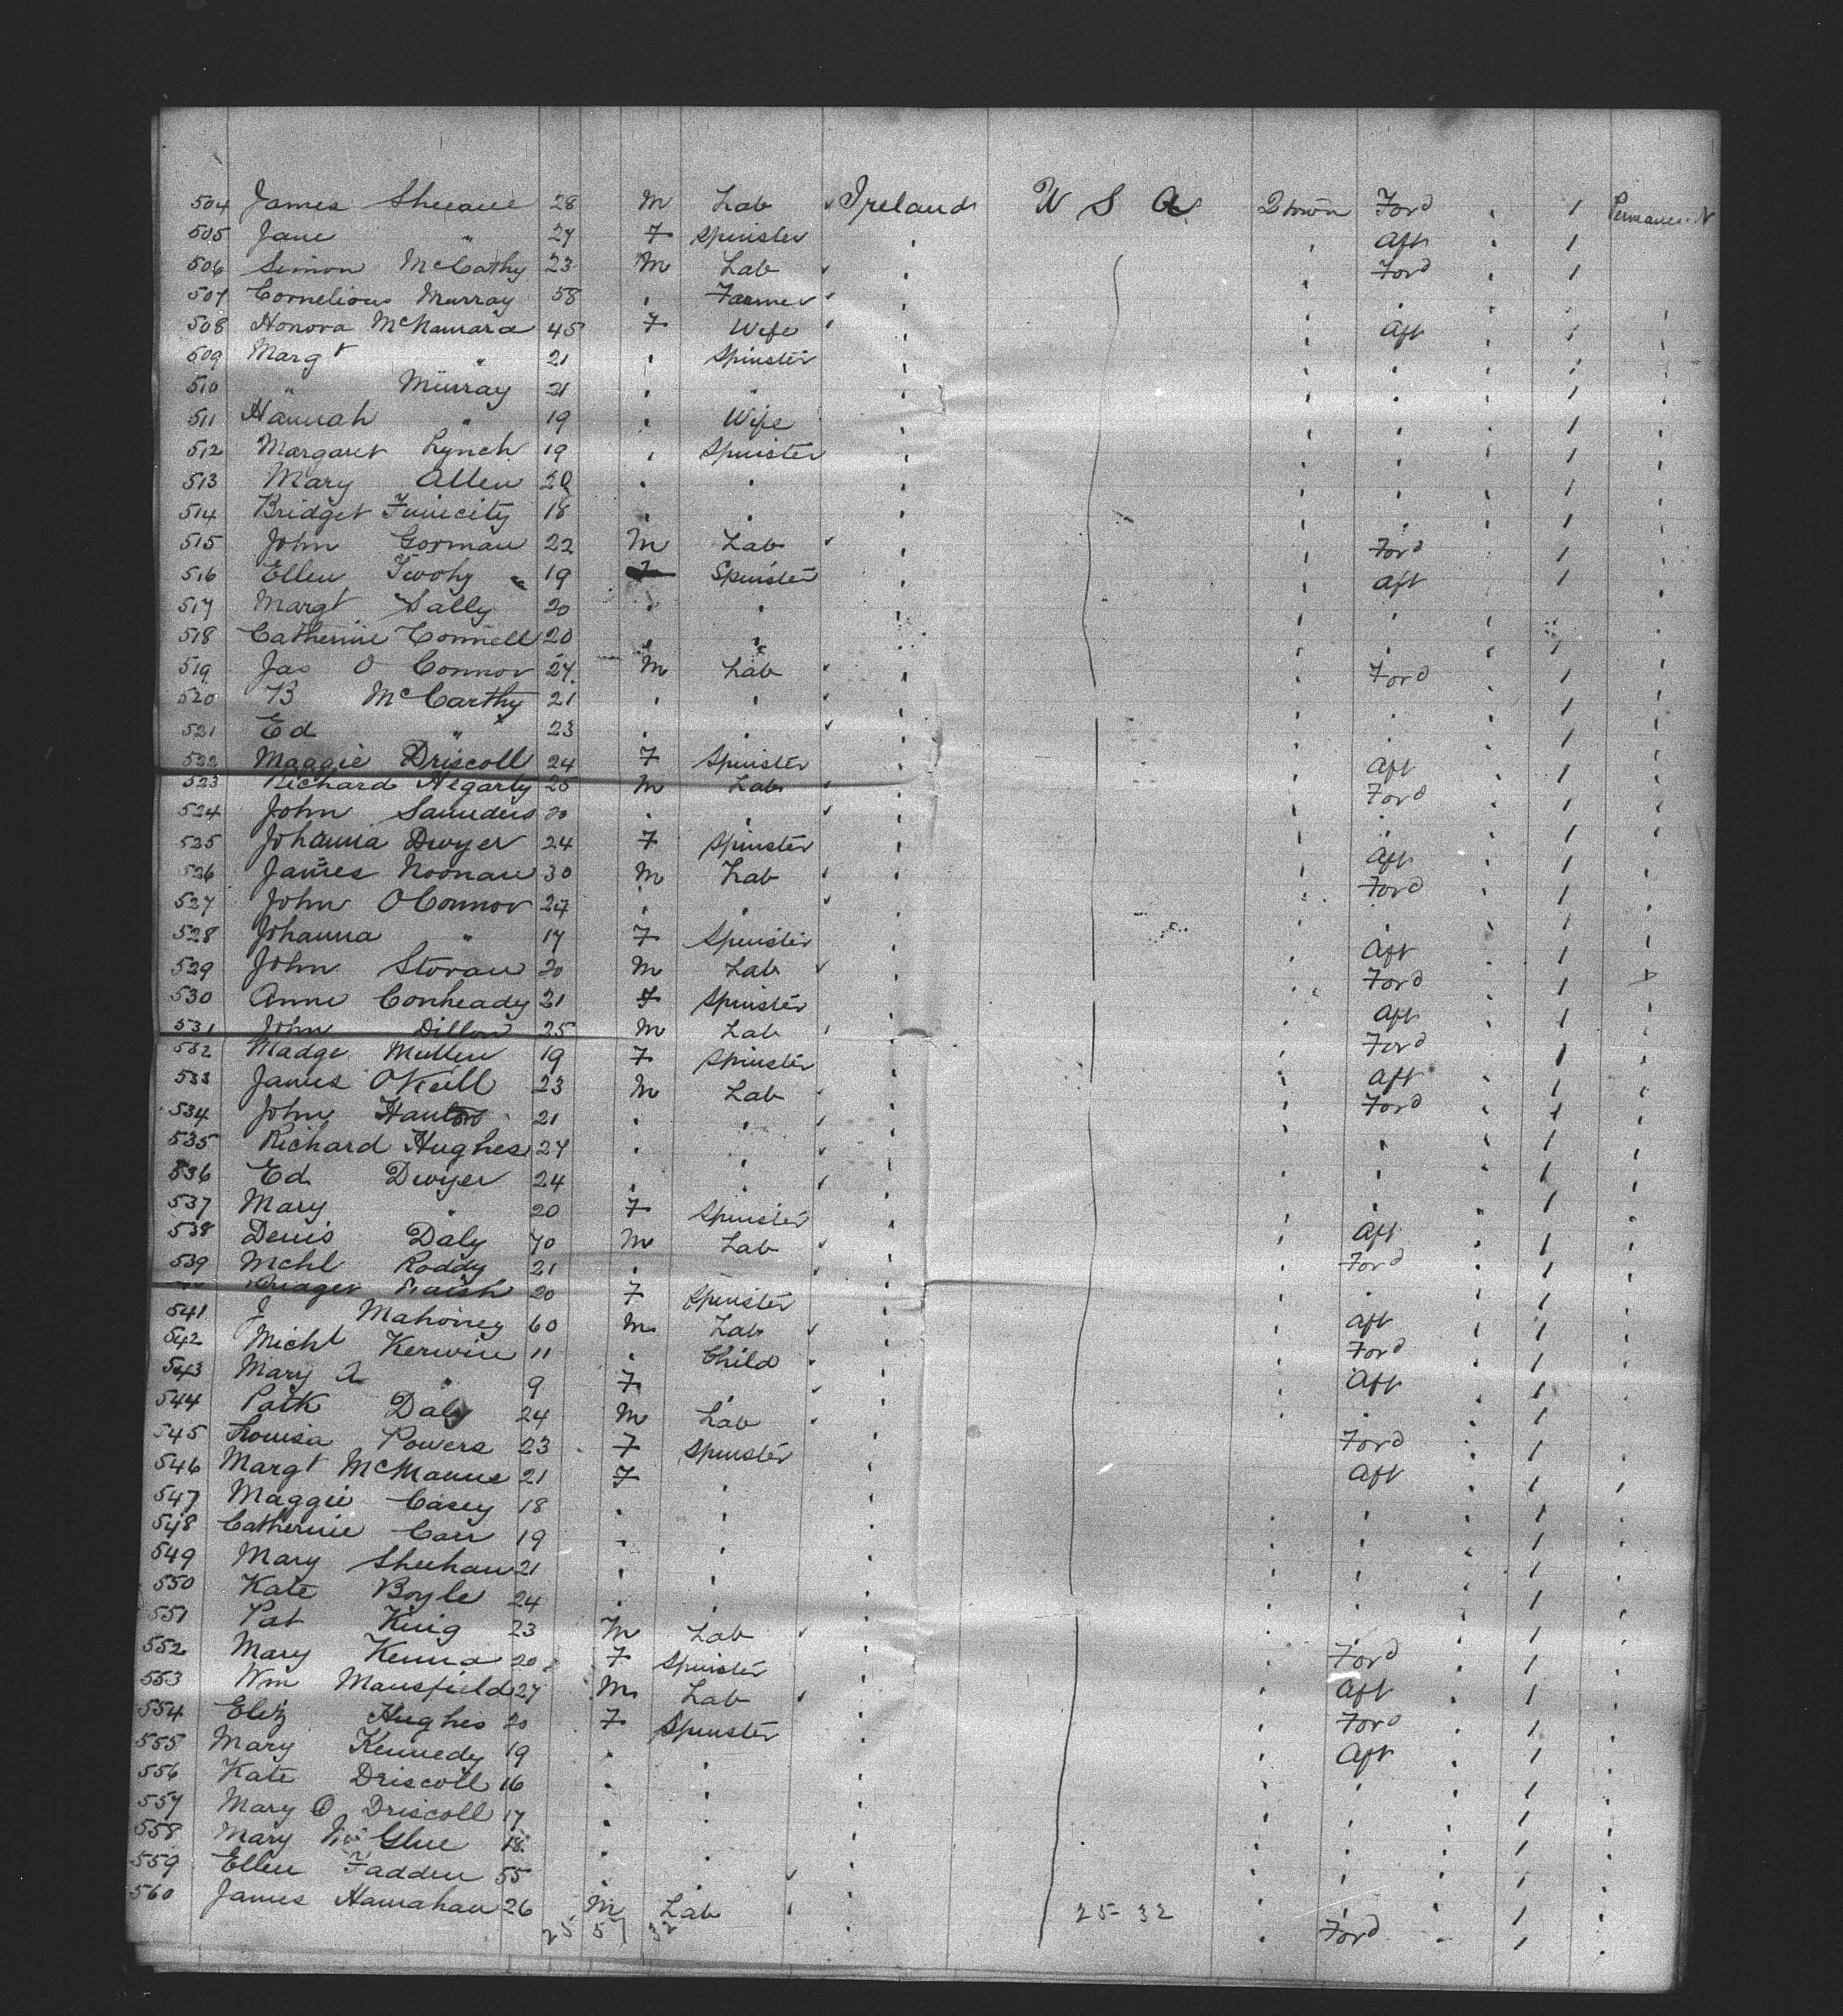 504 James Sheeane 28 M Lab Ireland U S A Qtown Ford 1 Permanent
505 Jane " 27 F Spinster Aft 1
506 Simon McCathy 23 M Lab Ford 1
507 Cornelious Murray 58 Farmer
508 Honora McNamara 45 F Wife Aft 1
509 Margt " 21 Spinster
510 " Murray 21 " 1
511 Hannah " 19 Wife 1
512 Margaret Lynch 19 Spinster 1
513 Mary Allen 20 1
514 Bridget 18 1
515 John Gorman 22 M Lab Ford 1
516 Ellen Twohy 19 F Spinster Aft 1
517 Margt Sally 20 "
518 Catherine Connell 20 " 1
519 Jas O Connor 27 M Lab Ford 1
520 B McCarthy 21 1
521 Ed " 23 1
522 Maggie Driscoll 24 F Spinster Aft 1
523 Richard Hegarty 25 M Lab Ford 1
524 John Saunders 20 1
525 Johanna Dwyer 24 F Spinster Aft 1
526 James Noonan 30 M Lab Ford 1
527 John OConnor 27 1
528 Johanna " 17 F Spinster Aft 1
529 John Storau 20 M Lab Ford 1
530 Anne Conheady 21 F Spinster Aft 1
531 John Dillon 25 M Lab Ford 1
532 Madge Mullen 19 F Spinster Aft 1
533 James OKeill 23 M Lab Ford 1
534 John Hanton 21 1
535 Richard Hughes 27 1
536 Ed Dwyer 24 1
537 Mary " 20 F Spinster Aft 1
538 Denis Daly 70 M Lab Ford 1
539 Mchl Roddy 21 1
Bridget 20 F Spinster Aft 1
541 J Mahoney 60 M Lab Ford 1
542 Michl Kerwin 11 Child
543 Mary A " 9 F Aft 1
544 Patk Daly 24 M Lab Ford 1
545 Louisa Powers 23 F Spinster Aft 1
546 Margt McManus 21 F 1
547 Maggie Casey 18 1
548 Catherine Carr 19 1
549 Mary Sheehan 21 1
550 Kate Boyle 24 1
551 Pat King 23 M Lab Ford 1
552 Mary Kenna 20 F Spinster Aft 1
553 Wm Mansfield 27 M Lab Ford 1
554 Eliz Hughes 20 F Spinster Aft 1
555 Mary Kennedy 19 1
556 Kate Driscoll 16 1
557 Mary O Driscoll 17 1
558 Mary Mc Glue 18 1
559 Ellen Fadden 55 1
560 James Hanrahan 26 M Lab Ford 1
25 57 32 25-32